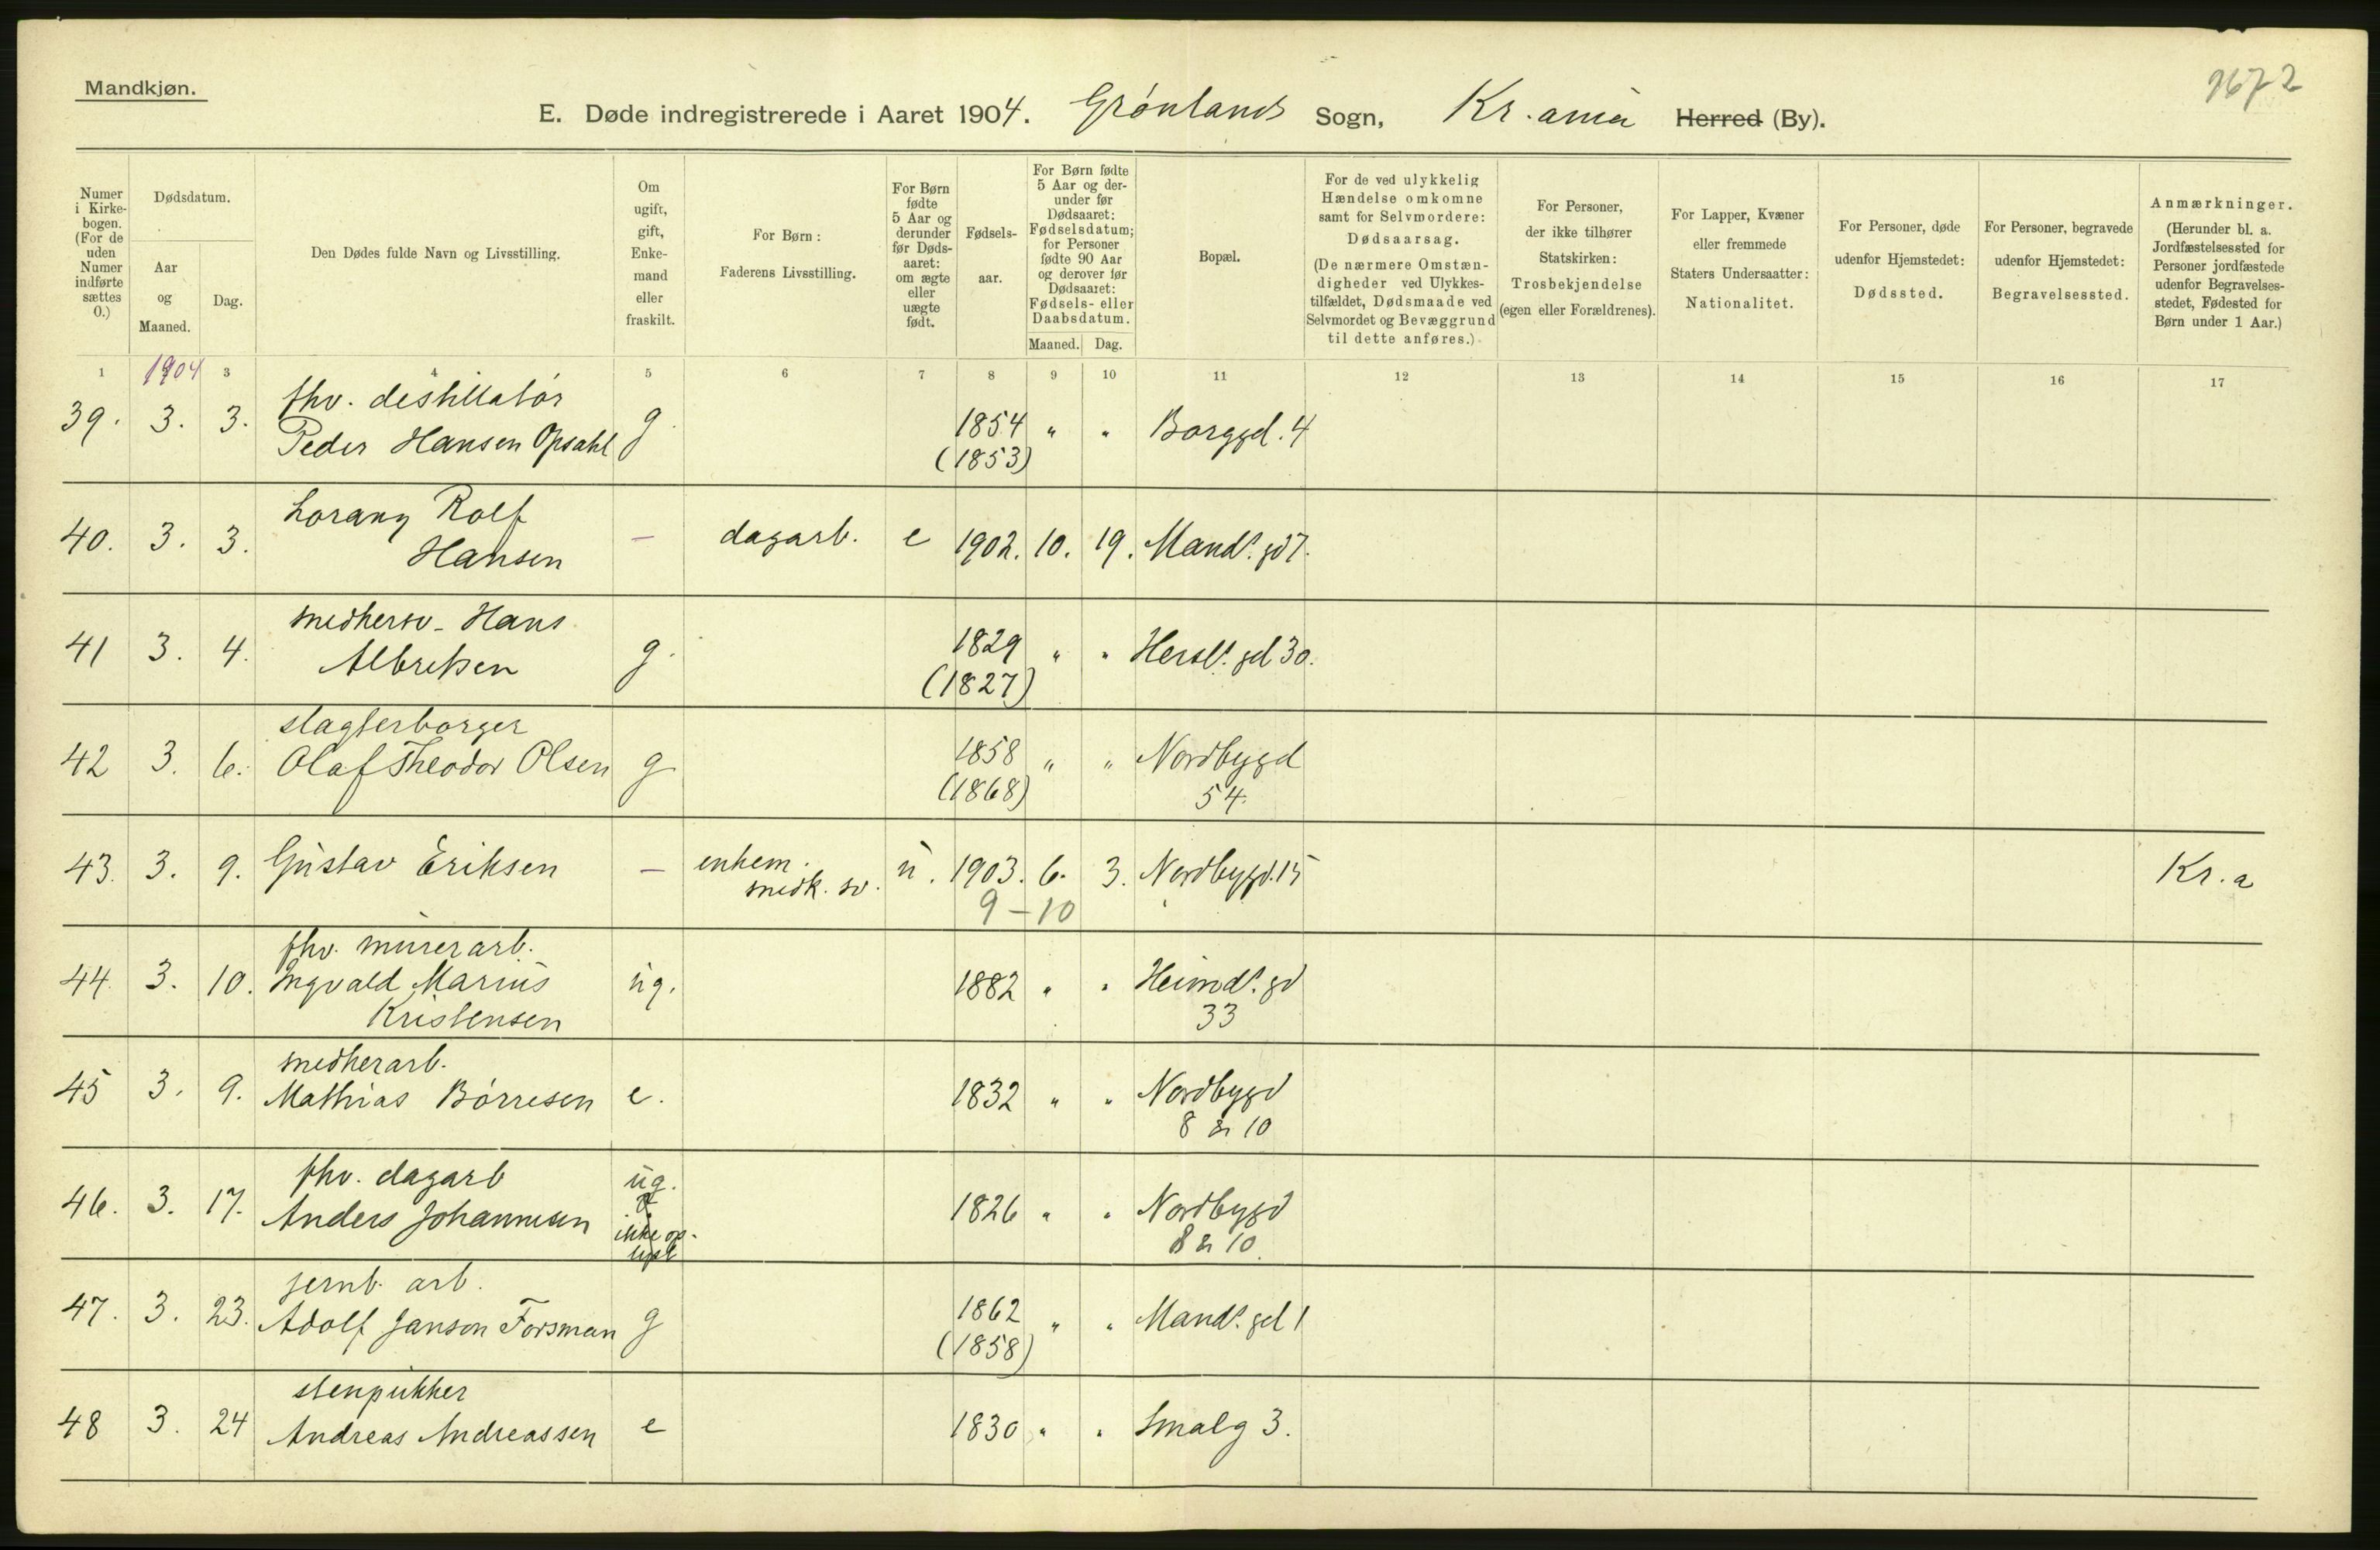 Mandkjøn.
9672
E. Døde indregistrerede i Aaret 1904. Grønlands Sogn, Kr.ania Herred (By).
Numer i Kirke-bogen. (For de uden Numer indførte sættes 0.)
Dødsdatum.
Aar og Maaned.
Dag.
Den Dødes fulde Navn og Livsstilling.
Om ugift, gift, Enke-mand eller fraskilt.
For Børn: Faderens Livsstilling.
For Børn fødte 5 Aar og derunder før Døds-aaret: om ægte eller uægte født.
Fødsels-aar.
For Børn fødte 5 Aar og der-under før Dødsaaret: Fødselsdatum; for Personer fødte 90 Aar og derover før Dødsaaret: Fødsels- eller Daabsdatum.
Maaned. Dag.
Bopæl.
For de ved ulykkelig Hændelse omkomne samt for Selvmordere: Dødsaarsag. (De nærmere Omstæn-digheder ved Ulykkes-tilfældet, Dødsmaade ved Selvmordet og Bevæggrund til dette anføres.)
For Personer, der ikke tilhører Statskirken: Trosbekjendelse (egen eller Forældrenes).
For Lapper, Kvæner eller fremmede Staters Undersaatter: Nationalitet.
For Personer, døde udenfor Hjemstedet: Dødssted.
For Personer, begravede udenfor Hjemstedet: Begravelsessted.
Anmærkninger. (Herunder bl. a. Jordfæstelsessted for Personer jordfæstede udenfor Begravelses-stedet, Fødested for Børn under 1 Aar.)
1 1904 3 4 5 6 7 8 9 10 11 12 13 14 15 16 17
fhv. destillatør
39. 3. 3. Peder Hansen Opsahl g. 1854 " " Borggd. 4
(1853)
Lorang Rolf
40. 3. 3. Hansen — dagarb. e 1902. 10. 19. Mands. gd 7.
snedkersv. Hans
41 3. 4. Albretsen g. 1829 " " Hersls. gd 30.
(1827)
slagterborger
42 3. 6. Olaf Theodor Olsen g 1858 " " Nordbygd
(1868) 54.
43. 3. 9. Gustav Eriksen — enkem. u. 1903. 6. 3. Nordbygd. 15 Kr.a
snedk. sv.
9 – 10
fhv. murerarb.
44. 3. 10. Ingvald Marius ug. 1882 " " Heimds. gd
Kristensen 33
snedkerarb.
45 3. 9. Mathias Børresen e. 1832 " " Nordbygd
8 & 10
fhv. dagarb ug.
46. 3. 17. Anders Johannesen 1826 " " Nordbygd
ikke op-
lyst 8 & 10.
jernb. arb.
47. 3. 23. Adolf Janson Forsman g 1862 " " Mands. gd 1
(1858)
stenpukker
48 3. 24 Andreas Andreassen e 1830 " " Smalg 3.